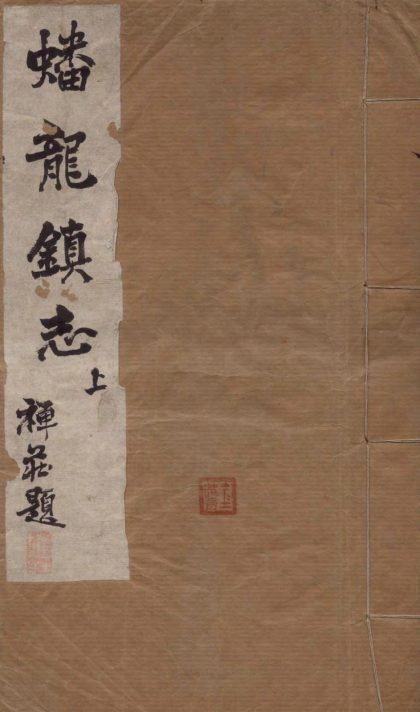 蟠龍鎮志
上
禪莊題